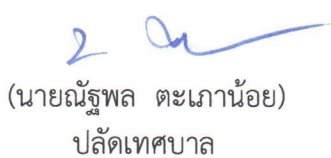 (นายณัฐพล ตะเภาน้อย)
ปลัดเทศบาล